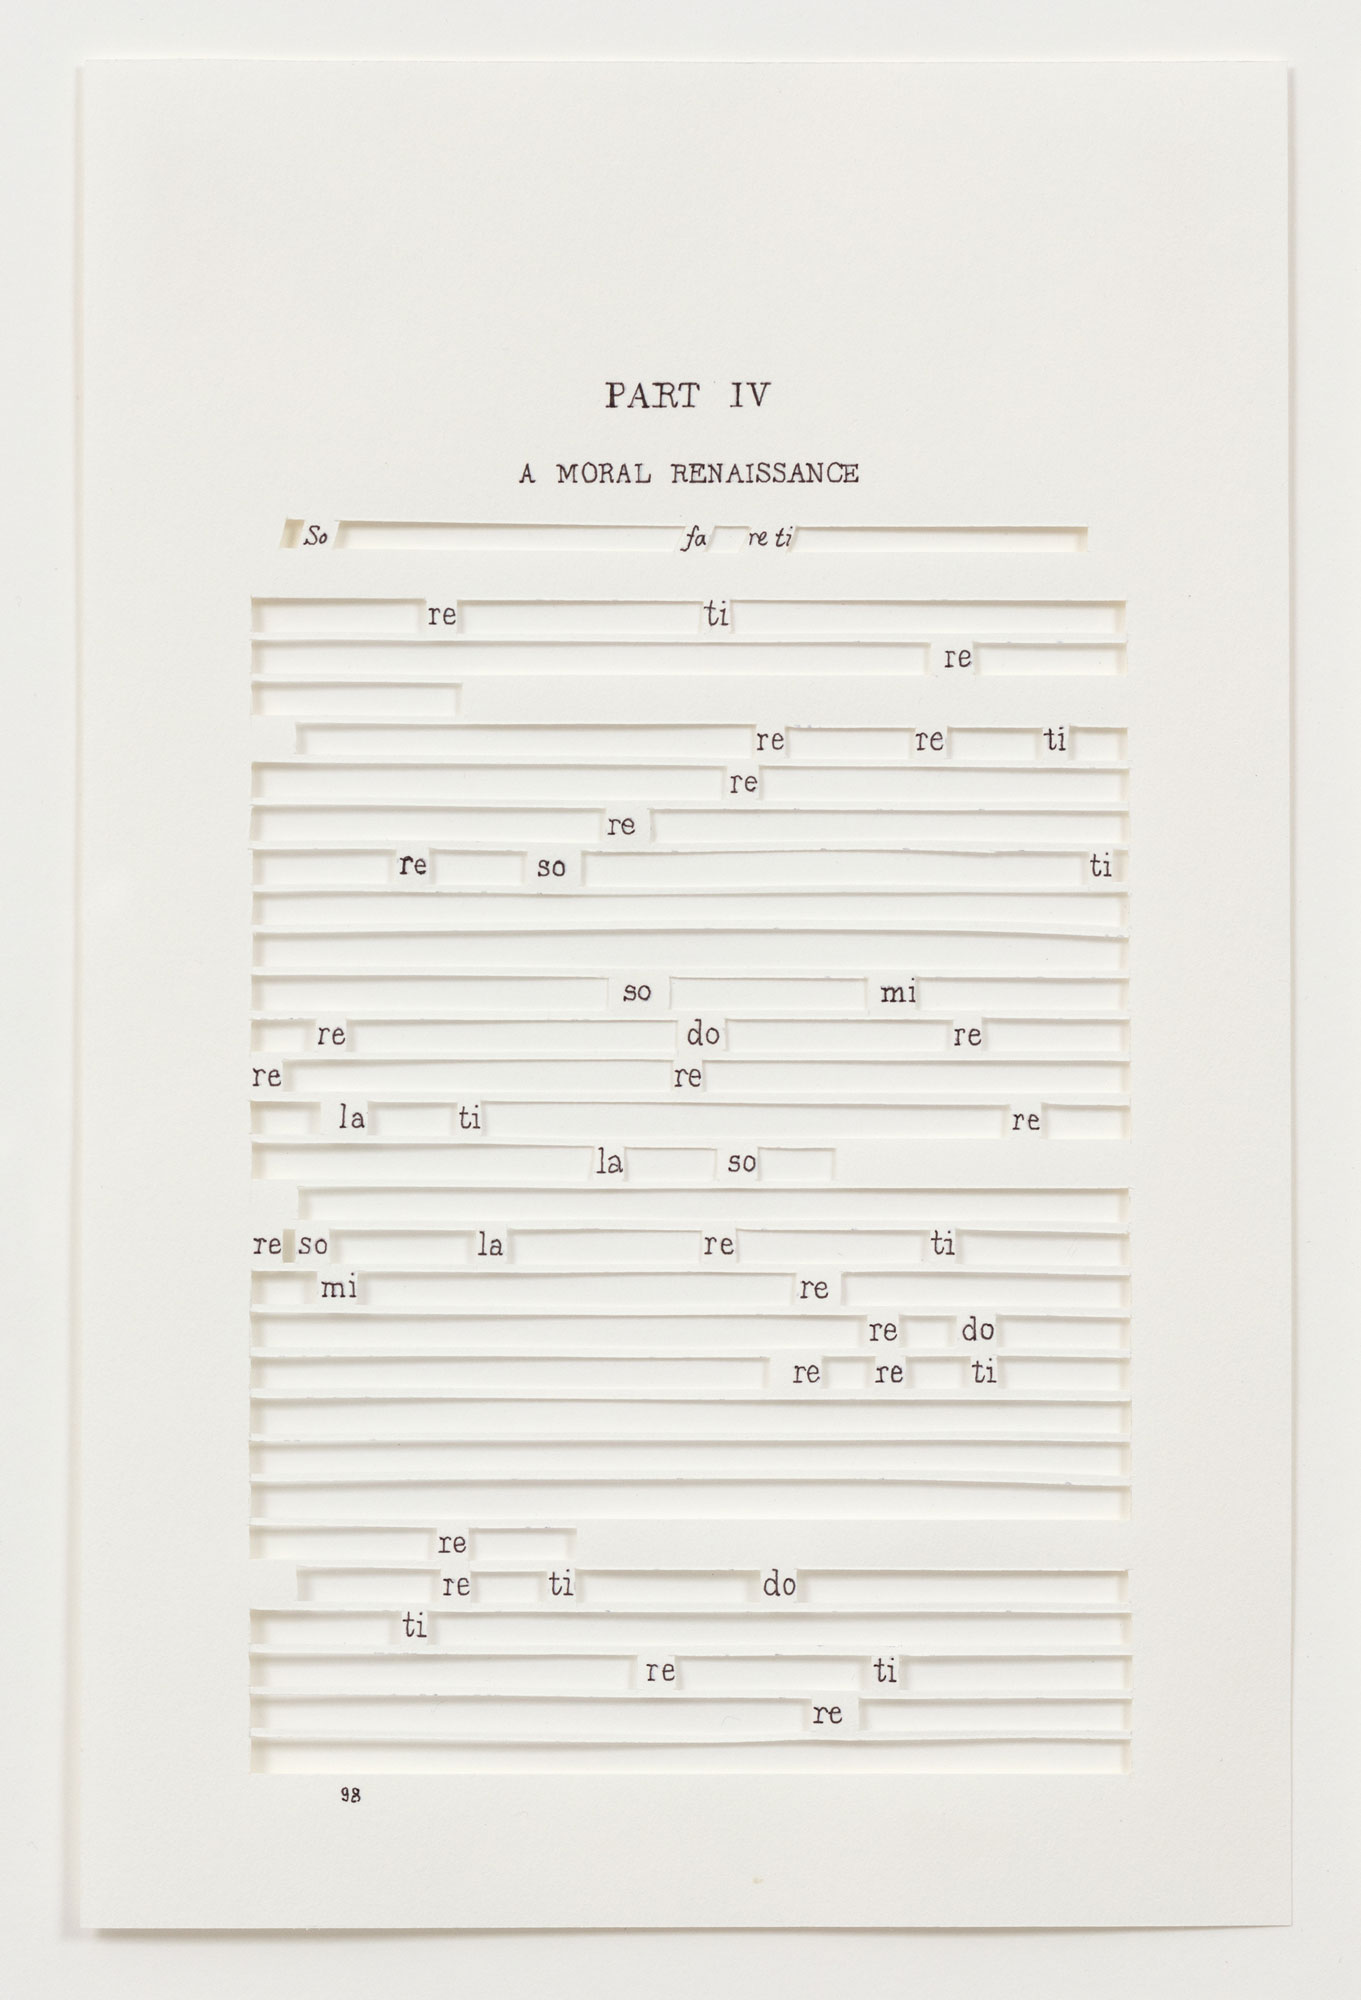 PART IV
A MORAL RENAISSANCE
So fa re ti
re ti
re
re re ti
re
re
re so ti
so mi
re do re
re re
la ti re
la so
re so la re ti
mi re
re do
re re ti
re
re ti do
ti
re ti
re
98